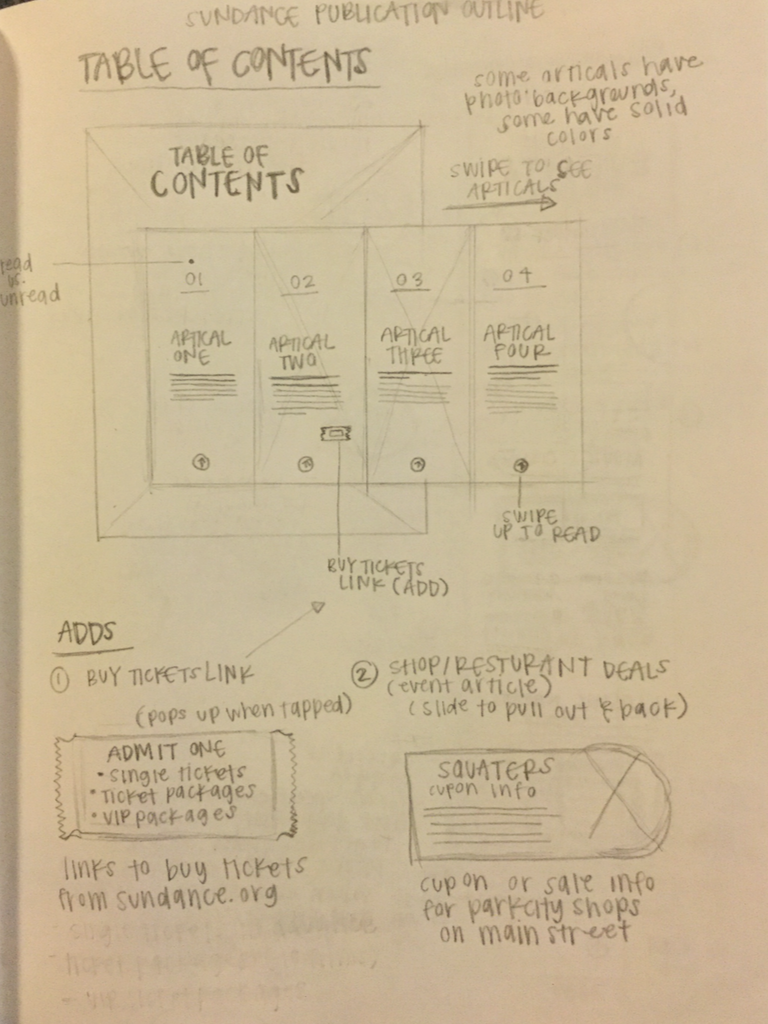 SUNDANCE PUBLICATION OUTLINE
TABLE OF CONTENTS
some articals have
photo backgrounds,
some have solid
colors
TABLE OF
CONTENTS
SWIPE TO SEE
ARTICALS
read
vs.
unread
01
02
03
04
ARTICAL
ONE
ARTICAL
TWO
ARTICAL
THREE
ARTICAL
FOUR
SWIPE
UP TO READ
BUY TICKETS
LINK (ADD)
ADDS
① BUY TICKETS LINK
(pops up when tapped)
ADMIT ONE
• single tickets
• Ticket packages
• VIP packages
links to buy tickets
from sundance.org
② SHOP/RESTURANT DEALS
(event article)
(slide to pull out & back)
SQUATERS
cupon info
cupon or sale info
for parkcity shops
on main street